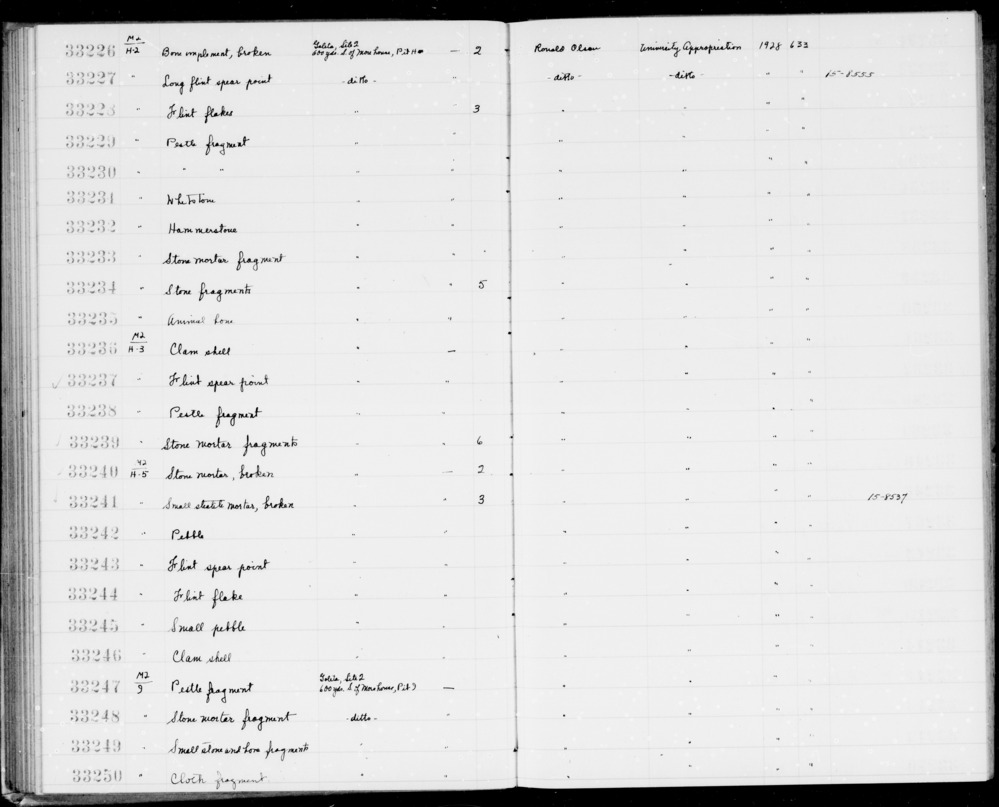 33226 M2 H-2 Bone implement, broken Goleta, Site 2 600 yds. S. of More house, Pit H — 2 Ronald Olson University Appropriation 1928 633
33227 " Long flint spear point - ditto - " - ditto - - ditto - " " 15-8555
33228 " Flint flakes " 3 " " " "
33229 " Pestle fragment " " " " " "
33230 " " " " " " " " "
33231 " Whetstone " " " " " "
33232 " Hammerstone " " " " " "
33233 " Stone mortar fragment " " " " " "
33234 " Stone fragments " " 5 " " " "
33235 " Animal bone " " " " " "
33236 M2 H-3 Clam shell " — " " " "
✓ 33237 " Flint spear point " " " " "
33238 " Pestle fragment " " " " " "
33239 " Stone mortar fragments " " 6 " " " "
33240 M2 H-5 Stone mortar, broken " — 2 " " " "
33241 " Small steatite mortar, broken " " 3 " " " " 15-8537
33242 " Pebble " " " " " "
33243 " Flint spear point " " " " " "
33244 " Flint flake " " " " " "
33245 " Small pebble " " " " " "
33246 " Clam shell " " " " "
33247 M2 9 Pestle fragment Goleta, Site 2 600 yds. S. of More house, Pit — " " " "
33248 " Stone mortar fragment - ditto - " " " " "
33249 " Small stone and bone fragments " " " " " "
33250 " Cloth fragment " " " " " "